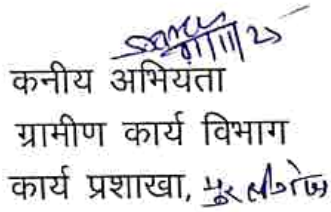 कनीय अभियंता
ग्रामीण कार्य विभाग
कार्य प्रशाखा, मुरलीगंज